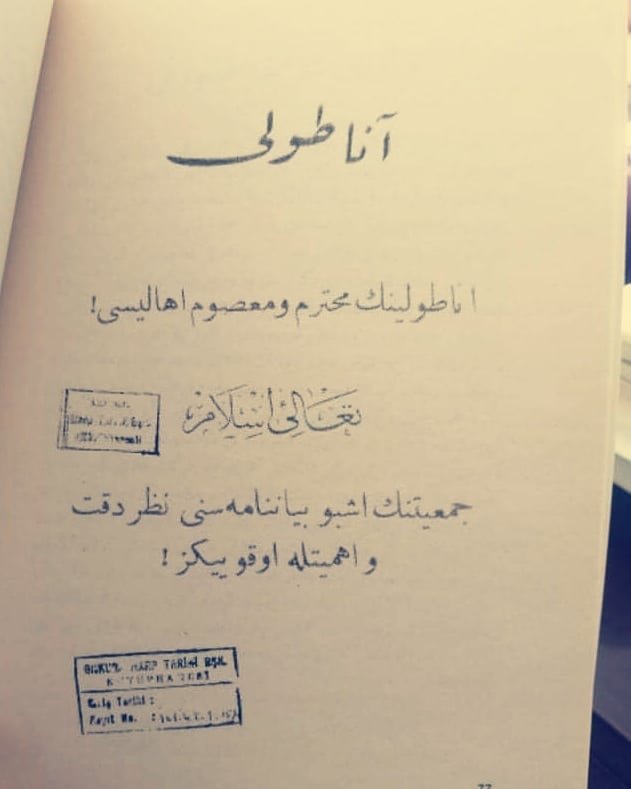 آناطولی
اناطولینك محترم ومعصوم اهالیسی!
تعالئ اسلام
جمعیتنك اشبو بیاننامه‌سنی نظر دقت
و اهمیتله اوقوییكز!
GNKUR. HARP TARİHİ BŞK.
KÜTÜPHANESİ
Giriş Tarihi :
Kayıt No. :
77